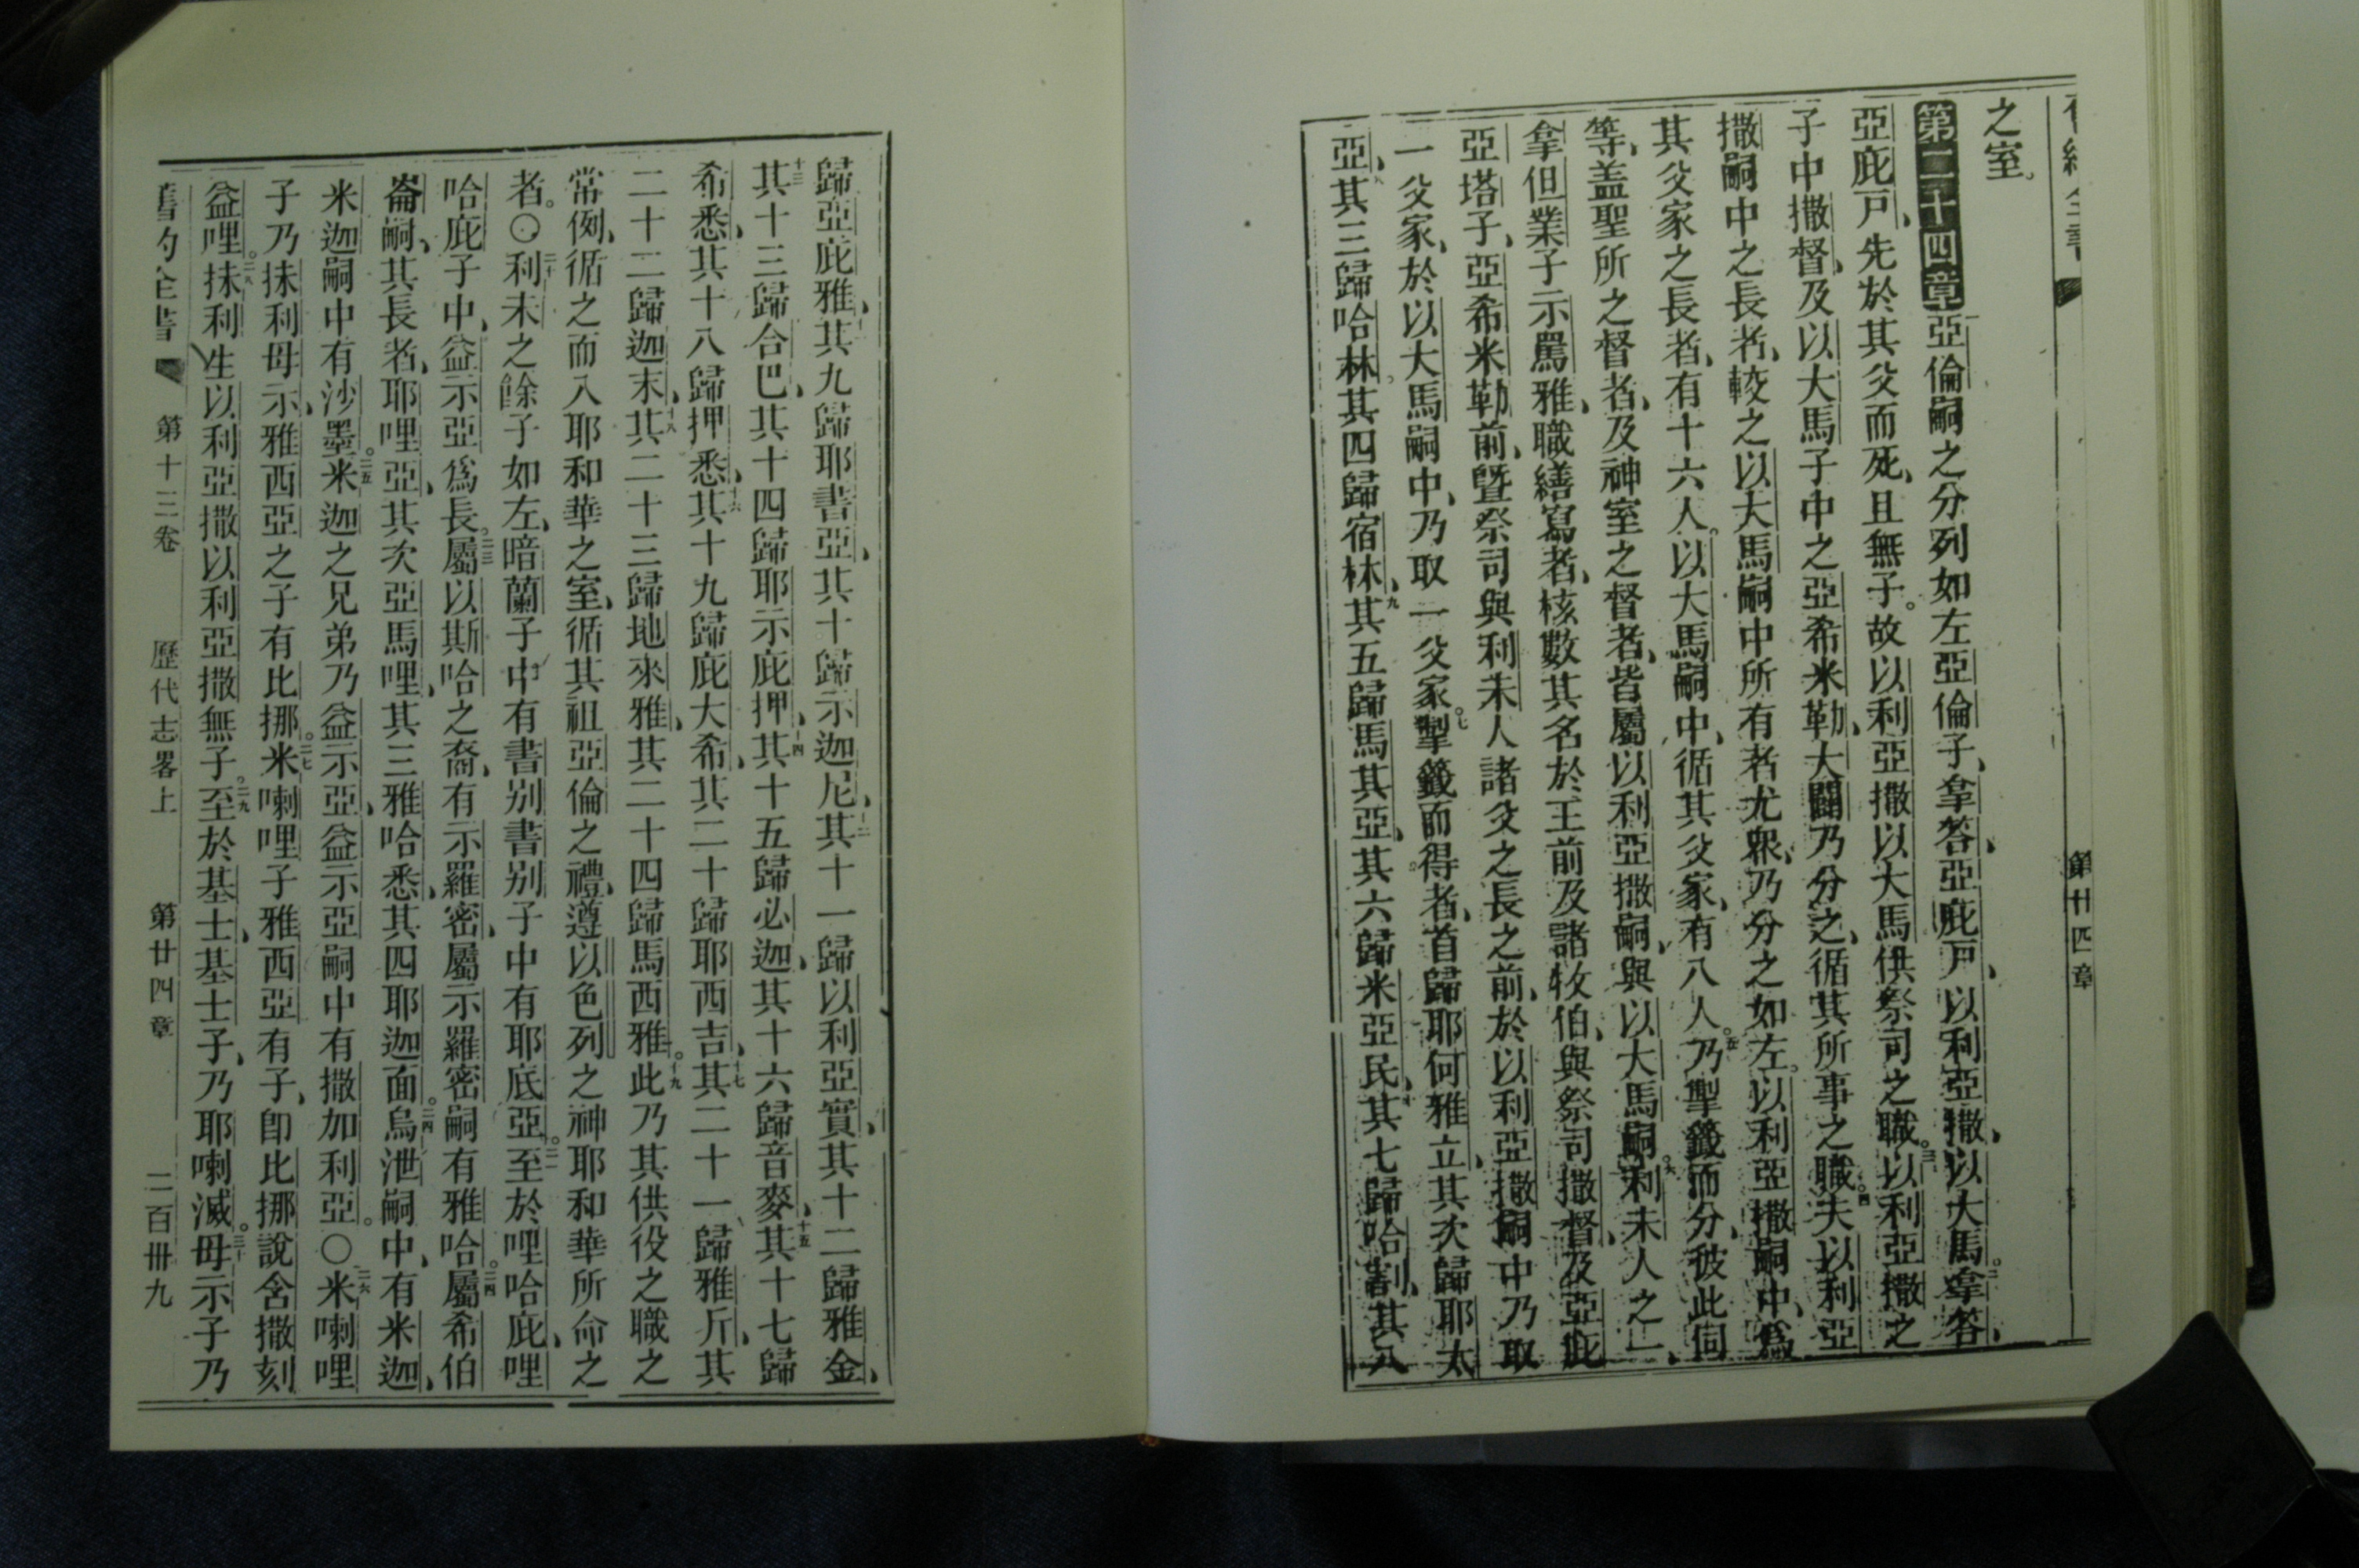 第廿四章
之室。
第二十四章亞倫嗣之分列如左亞倫子、拿答、亞庇戸、以利亞撒、以大馬。二拿答、
亞庇戸、先於其父而死、且無子。故以利亞撒以大馬供祭司之職。三以利亞撒之
子中撒督、及以大馬子中之亞希米勒、大闢乃分之、循其所事之職。四夫以利亞
撒嗣中之長者、較之以大馬嗣中所有者尤衆、乃分之如左。以利亞撒嗣中、爲
其父家之長者、有十六人。以大馬嗣中、循其父家、有八人。五乃掣籤而分、彼此同
等、盖聖所之督者、及神室之督者、皆屬以利亞撒嗣、與以大馬嗣。六利未人之一、
拿但業子示罵雅、職繕寫者、核數其名於王前及諸牧伯、與祭司撒督、及亞庇
亞塔子、亞希米勒前、曁祭司與利未人諸父之長之前、於以利亞撒嗣中乃取
一父家、於以大馬嗣中、乃取一父家。七掣籤而得者、首歸耶何雅立、其次歸耶太
亞、八其三歸哈林。其四歸宿林、九其五歸馬其亞、其六歸米亞民、十其七歸哈割、其八
歸亞庇雅、十一其九歸耶書亞、其十歸示迦尼、十二其十一歸以利亞實、其十二歸雅金、
十三其十三歸合巴、其十四歸耶示庇押、十四其十五歸必迦、其十六歸音麥、十五其十七歸
希悉、其十八歸押悉、十六其十九歸庇大希、其二十歸耶西吉、十七其二十一歸雅斤、其
二十二歸迦末、十八其二十三歸地來雅、其二十四歸馬西雅。十九此乃其供役之職之
常例、循之而入耶和華之室、循其祖亞倫之禮、遵以色列之神耶和華所命之
者。〇二十利未之餘子如左、暗蘭子中有書别書别子中有耶底亞。二一至於哩哈庇、哩
哈庇子中、益示亞爲長。二二屬以斯哈之裔、有示羅密、屬示羅密嗣有雅哈。二四屬希伯
崙嗣、其長者、耶哩亞、其次亞馬哩、其三雅哈悉、其四耶迦面。二四烏泄嗣中、有米迦、
米迦嗣中有沙墨。二五米迦之兄弟乃益示亞、益示亞嗣中有撒加利亞。〇二六米喇哩
子乃抺利母示、雅西亞之子有比挪。二七米喇哩子雅西亞有子、卽比挪說含撒刻
益哩。二八抺利生以利亞撒以利亞撒無子。二九至於基士、基士子、乃耶喇滅。三十母示子乃
第十三卷 歷代志畧上 第廿四章 二百卅九